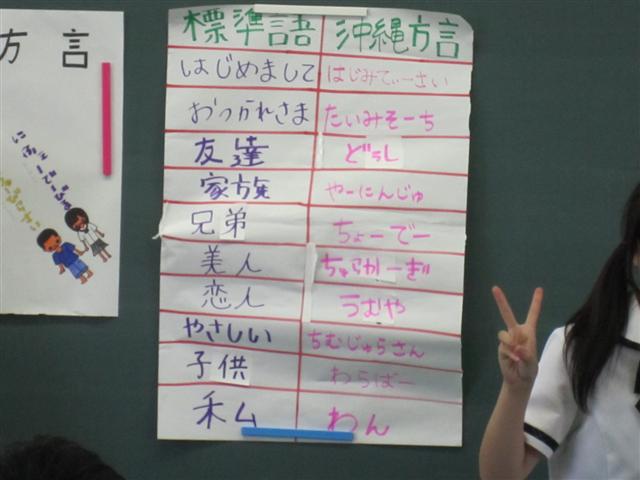 方言
標準語 沖縄方言
はじめまして はじみてぃーさい
おつかれさま たいみそーち
友達 どぅし
家族 やーにんじゅ
兄弟 ちょーでー
美人 ちゅらかーぎ
恋人 うむやー
やさしい ちむじゅらさん
子供 わらばー
私 わん